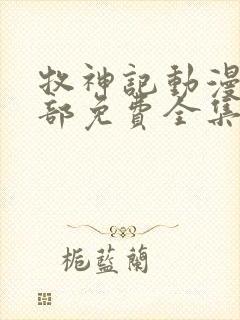 牧神記動漫
部免費全集
梔藍蘭